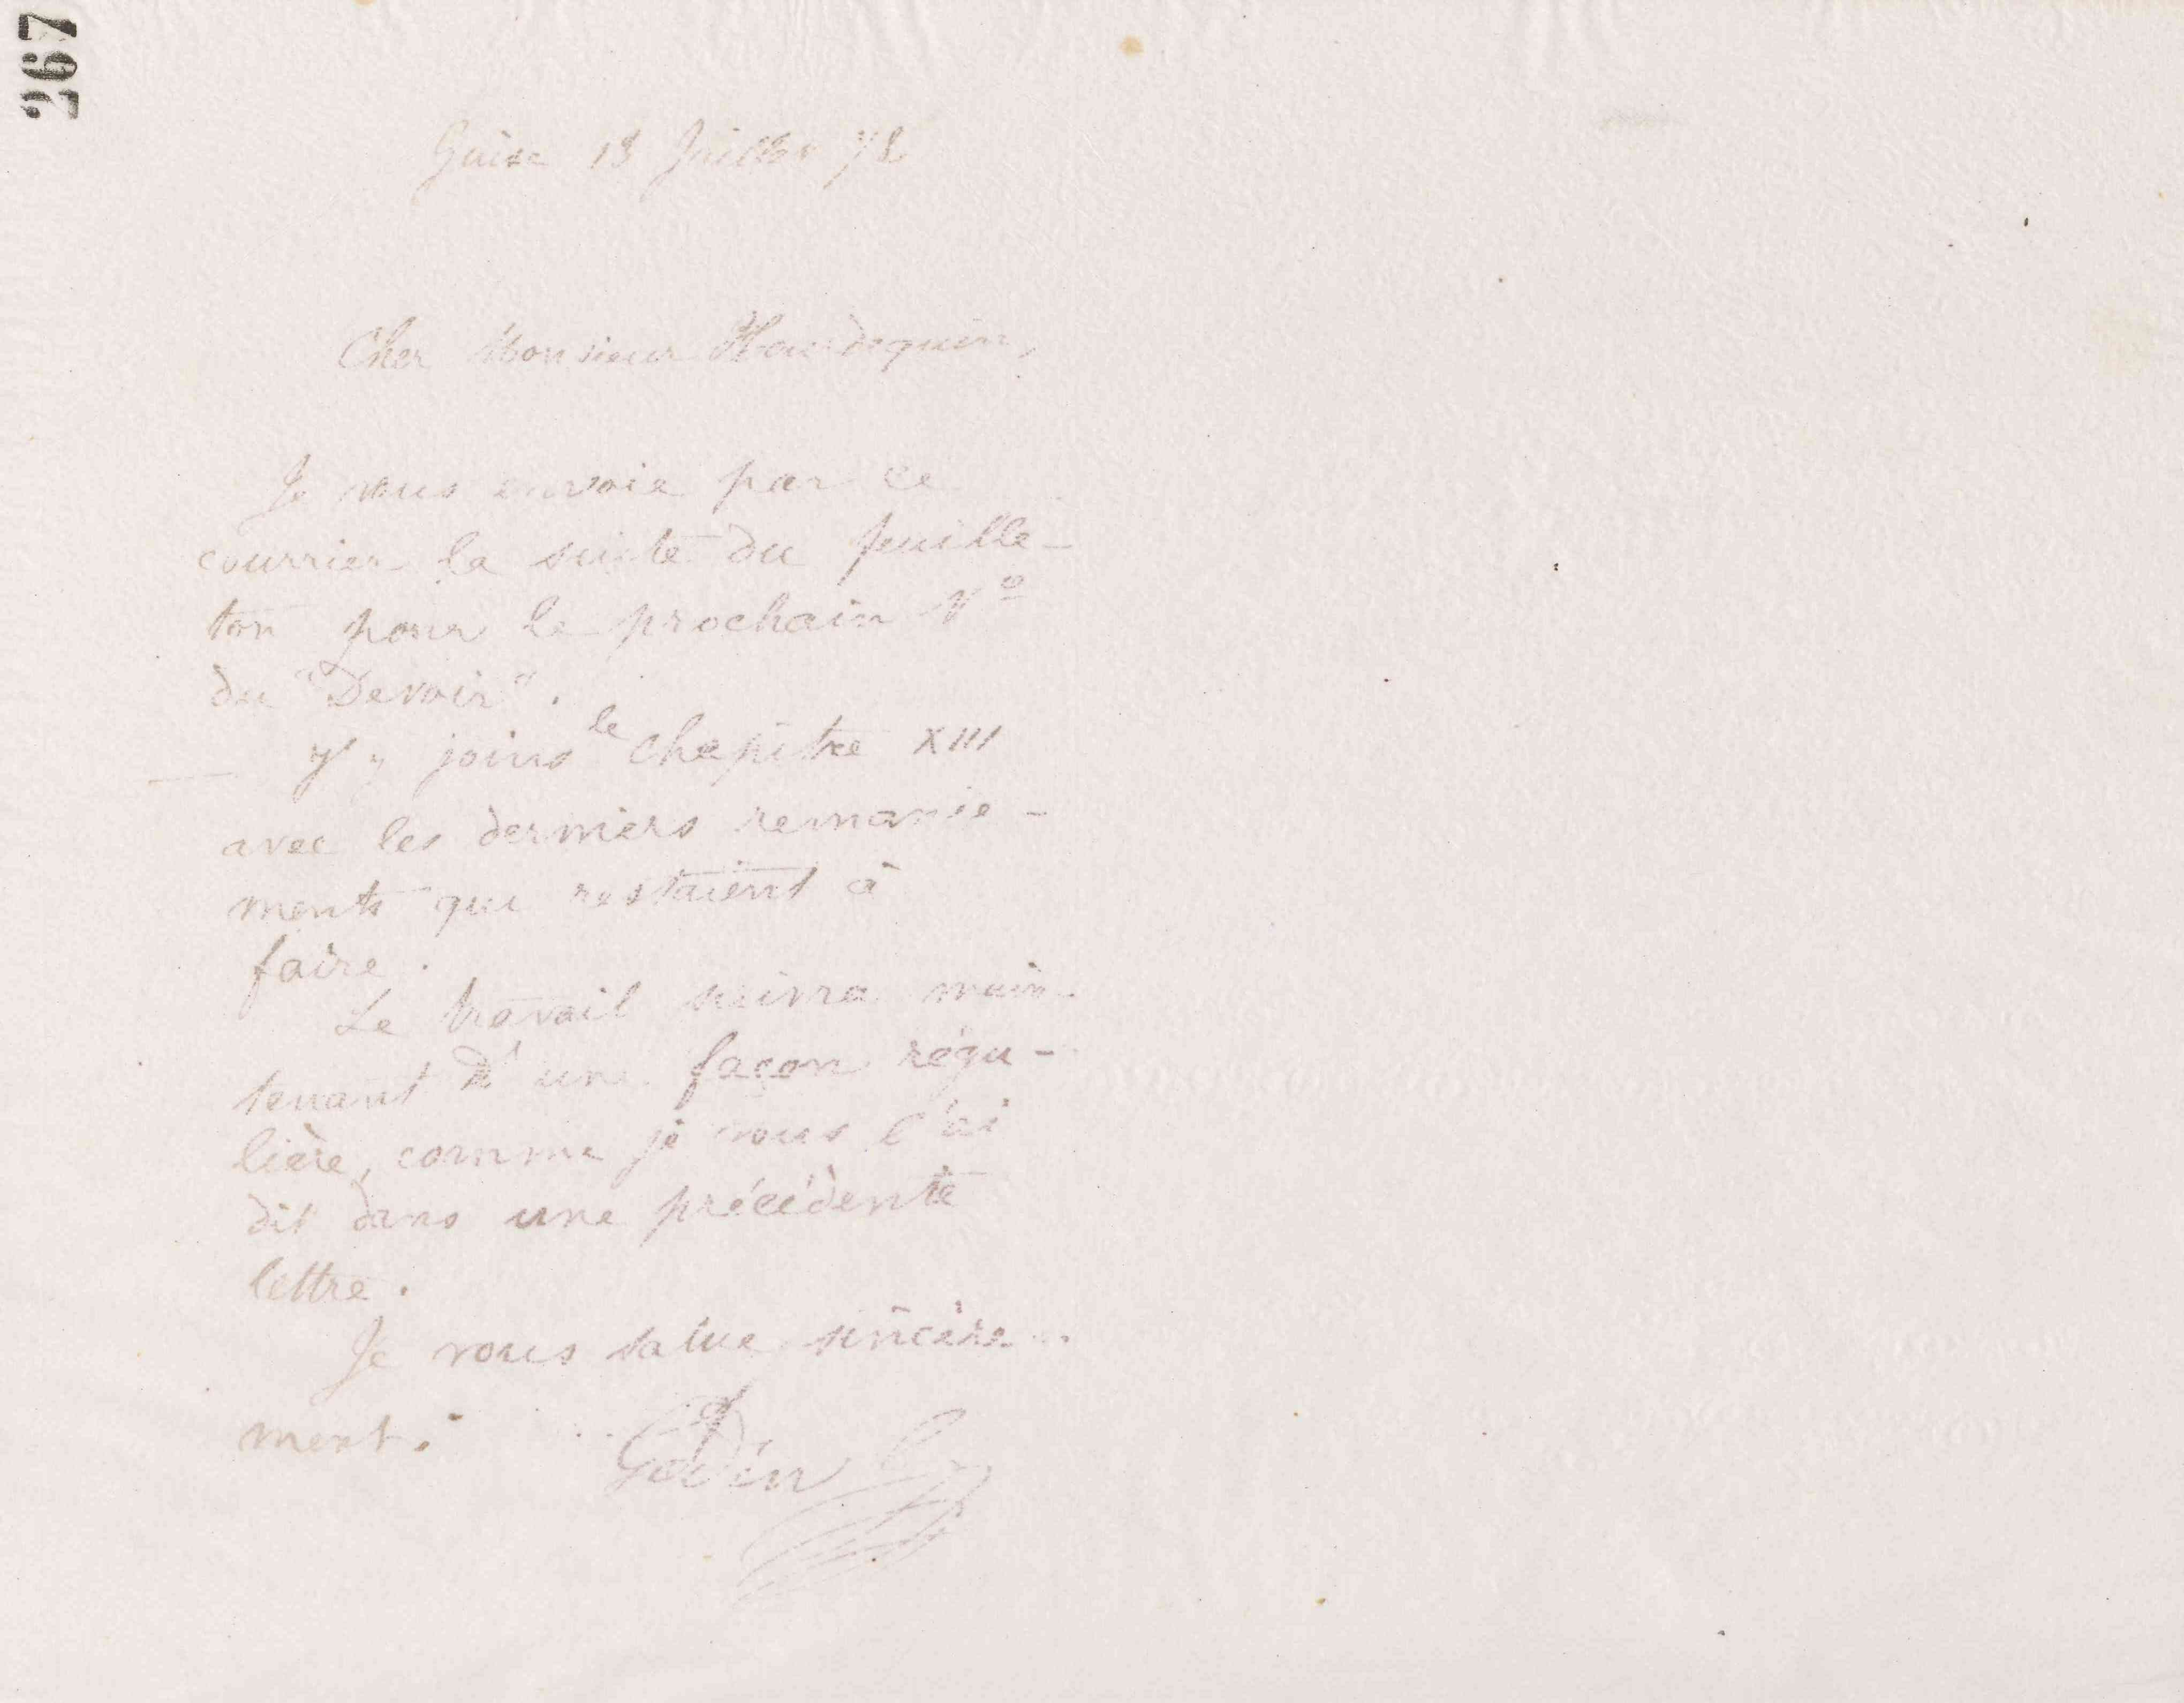 267
Guise 13 Juillet 78
Cher Monsieur Hourdequin,
Je vous envoie par ce
courrier la suite du feuille-
ton pour le prochain Nº
du "Devoir".
J'y joins le chapitre XIII
avec les derniers remanie-
ments qui restaient à
faire.
Le travail suivra main-
tenant d'une façon régu-
lière, comme je vous l'ai
dit dans une précédente
lettre.
Je vous salue sincère-
ment.
Godin